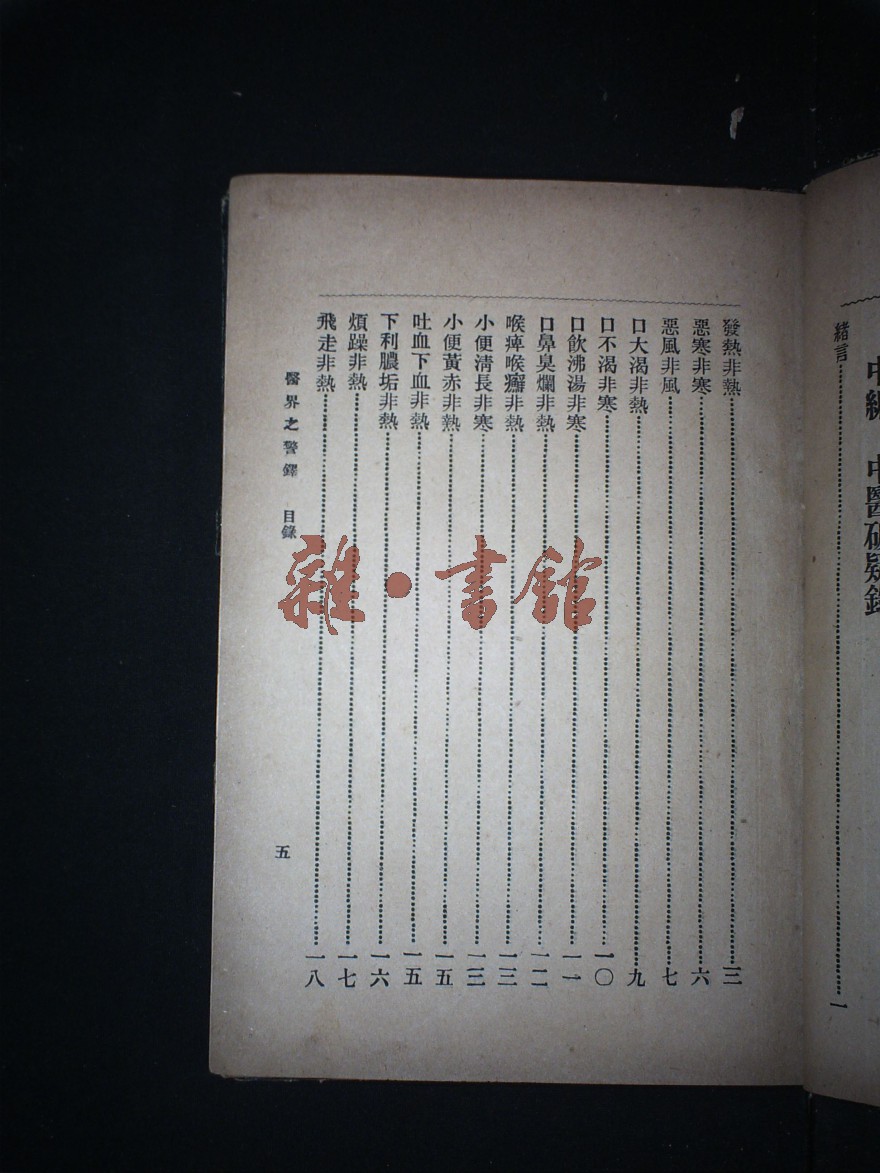 中編 中醫破疑錄
緒言 一
發熱非熱 三
惡寒非寒 六
惡風非風 七
口大渴非熱 九
口不渴非寒 一〇
口飲沸湯非寒 一一
口鼻臭爛非熱 一二
喉痺喉癰非熱 一三
小便清長非寒 一三
小便黃赤非熱 一五
吐血下血非熱 一五
下利膿垢非熱 一六
煩躁非熱 一七
飛走非熱 一八
醫界之警鐸 目錄 五
雜·書館